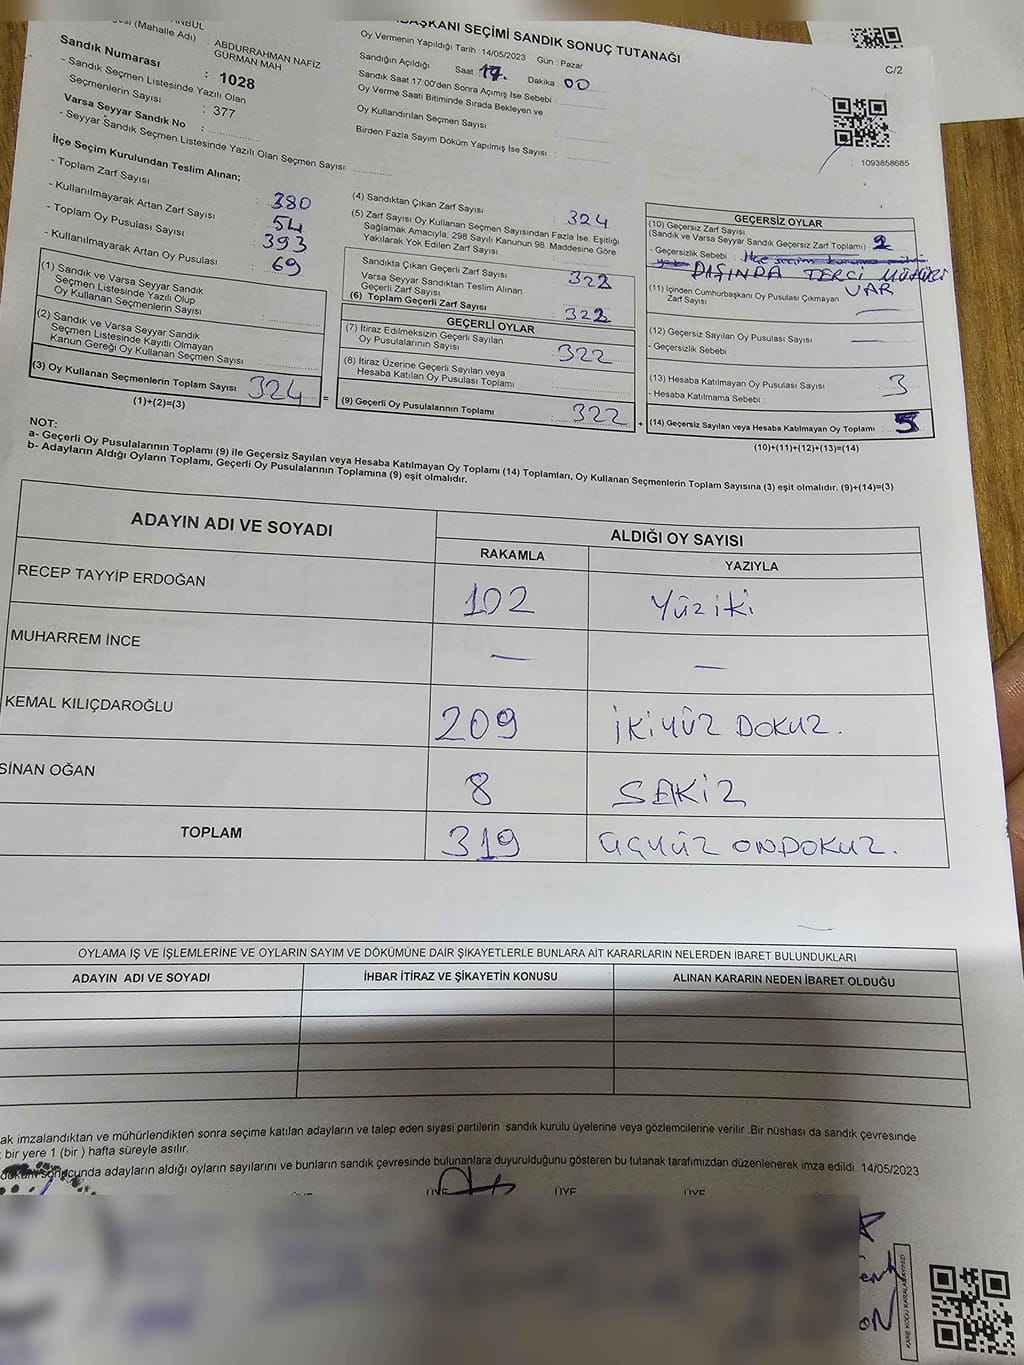 BAŞKANI SEÇİMİ SANDIK SONUÇ TUTANAĞI
(Mahalle Adı) : ABDURRAHMAN NAFİZ
GÜRMAN MAH
Sandık Numarası : 1028
- Sandık Seçmen Listesinde Yazılı Olan
Seçmenlerin Sayısı : 377
Varsa Seyyar Sandık No :
- Seyyar Sandık Seçmen Listesinde Yazılı Olan Seçmen Sayısı:
Oy Vermenin Yapıldığı Tarih : 14/05/2023 Gün : Pazar
Sandığın Açıldığı Saat : 17. Dakika : 00
Sandık Saat 17:00'den Sonra Açımış İse Sebebi :
Oy Verme Saati Bitiminde Sırada Bekleyen ve
Oy Kullandırılan Seçmen Sayısı
Birden Fazla Sayım Döküm Yapılmış İse Sayısı :
C/2
1093858685
İlçe Seçim Kurulundan Teslim Alınan;
- Toplam Zarf Sayısı : 380
- Kullanılmayarak Artan Zarf Sayısı : 54
- Toplam Oy Pusulası Sayısı : 393
- Kullanılmayarak Artan Oy Pusulası : 69
(1) Sandık ve Varsa Seyyar Sandık
Seçmen Listesinde Yazılı Olup
Oy Kullanan Seçmenlerin Sayısı
(2) Sandık ve Varsa Seyyar Sandık
Seçmen Listesinde Kayıtlı Olmayan
Kanun Gereği Oy Kullanan Seçmen Sayısı
(3) Oy Kullanan Seçmenlerin Toplam Sayısı 324
(1)+(2)=(3)
=
(4) Sandıktan Çıkan Zarf Sayısı : 324
(5) Zarf Sayısı Oy Kullanan Seçmen Sayısından Fazla İse, Eşitliği
Sağlamak Amacıyla, 298 Sayılı Kanunun 98. Maddesine Göre
Yakılarak Yok Edilen Zarf Sayısı
Sandıkta Çıkan Geçerli Zarf Sayısı : 322
Varsa Seyyar Sandıktan Teslim Alınan
Geçerli Zarf Sayısı
(6) Toplam Geçerli Zarf Sayısı : 322
GEÇERLİ OYLAR
(7) İtiraz Edilmeksizin Geçerli Sayılan
Oy Pusulalarının Sayısı 322
(8) İtiraz Üzerine Geçerli Sayılan veya
Hesaba Katılan Oy Pusulası Toplamı
(9) Geçerli Oy Pusulalarının Toplamı : 322
+
GEÇERSİZ OYLAR
(10) Geçersiz Zarf Sayısı
(Sandık ve Varsa Seyyar Sandık Geçersiz Zarf Toplamı) : 2
- Geçersizlik Sebebi :
DIŞINDA TERCİ MÜHÜRÜ
VAR
(11) İçinden Cumhurbaşkanı Oy Pusulası Çıkmayan
Zarf Sayısı —
(12) Geçersiz Sayılan Oy Pusulası Sayısı : —
- Geçersizlik Sebebi
(13) Hesaba Katılmayan Oy Pusulası Sayısı : 3
- Hesaba Katılmama Sebebi :
(14) Geçersiz Sayılan veya Hesaba Katılmayan Oy Toplamı : 5
(10)+(11)+(12)+(13)=(14)
NOT:
a- Geçerli Oy Pusulalarının Toplamı (9) ile Geçersiz Sayılan veya Hesaba Katılmayan Oy Toplamı (14) Toplamları, Oy Kullanan Seçmenlerin Toplam Sayısına (3) eşit olmalıdır. (9)+(14)=(3)
b- Adayların Aldığı Oyların Toplamı, Geçerli Oy Pusulalarının Toplamına (9) eşit olmalıdır.
ADAYIN ADI VE SOYADI ALDIĞI OY SAYISI
RAKAMLA YAZIYLA
RECEP TAYYİP ERDOĞAN 102 Yüz iki
MUHARREM İNCE — —
KEMAL KILIÇDAROĞLU 209 İKİYÜZ DOKUZ.
SİNAN OĞAN 8 SEKİZ
TOPLAM 319 ÜÇYÜZ ONDOKUZ.
OYLAMA İŞ VE İŞLEMLERİNE VE OYLARIN SAYIM VE DÖKÜMÜNE DAİR ŞİKAYETLERLE BUNLARA AİT KARARLARIN NELERDEN İBARET BULUNDUKLARI
ADAYIN ADI VE SOYADI İHBAR İTİRAZ VE ŞİKAYETİN KONUSU ALINAN KARARIN NEDEN İBARET OLDUĞU
ak imzalandıktan ve mühürlendikten sonra seçime katılan adayların ve talep eden siyasi partilerin sandık kurulu üyelerine veya gözlemcilerine verilir .Bir nüshası da sandık çevresinde
bir yere 1 (bir ) hafta süreyle asılır.
sonucunda adayların aldığı oyların sayılarını ve bunların sandık çevresinde bulunanlara duyurulduğunu gösteren bu tutanak tarafımızdan düzenlenerek imza edildi. 14/05/2023
ÜYE ÜYE ÜYE ÜYE